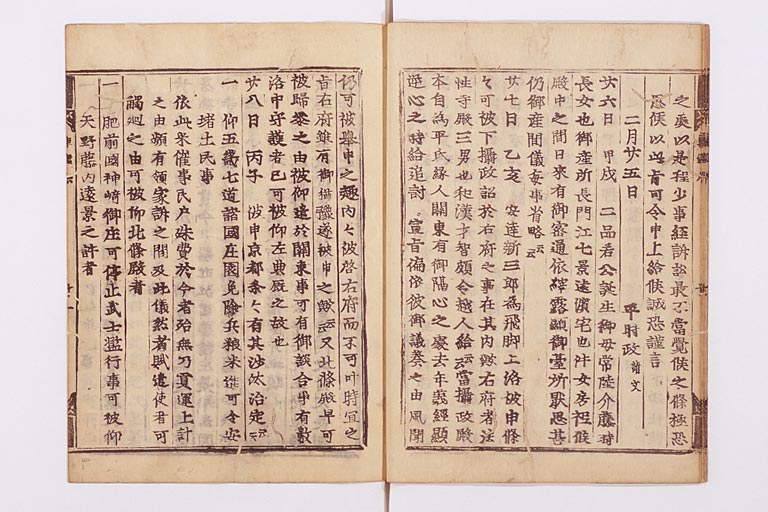 之奧以是程少事經訴訟最不當覺候之條極恐
思候以此旨可令申上給候誠恐謹言
二月廿五日 平時政請文
廿六日 甲戌 二品若公誕生御母常陸介藤時
長女也御產所長門江七景遠濱宅也件女房祗候
殿中之間日來有御密通依縡露顯御臺所猒思甚
仍御產間儀每事省略云云
廿七日 乙亥 安達新三郎為飛脚上洛被申條
々可被下攝政詔於右府之事在其內歟右府者法
性寺殿三男也和漢才智頗令越人給云云當攝政殿
本自為平氏緣人關東有御隔心之處去年義經顯
逆心之時給追討 宣旨偏依彼御議奏之由風聞
仍可被舉申之趣內々被啓右府而不可叶時宜之
旨右府雖有御猶豫遂被申之歟云云又北條殿早可
被歸參之由被仰遣於關東事可有御談合事有數
洛中守護者已可被仰左典厩之故也
廿八日 丙子 被申京都條々有其沙汰治定云云
一 仰五畿七道諸國庄園免除兵粮米進可令安
堵土民事
依此米催事民戶殊費於今者殆無乃貢運上計
之由頗有領家訴之間及此儀然者賦遣使者可
觸廻之由可被仰北條殿者
一 肥前國神崎御庄可停止武士濫行事可被仰
天野藤內遠景之許者